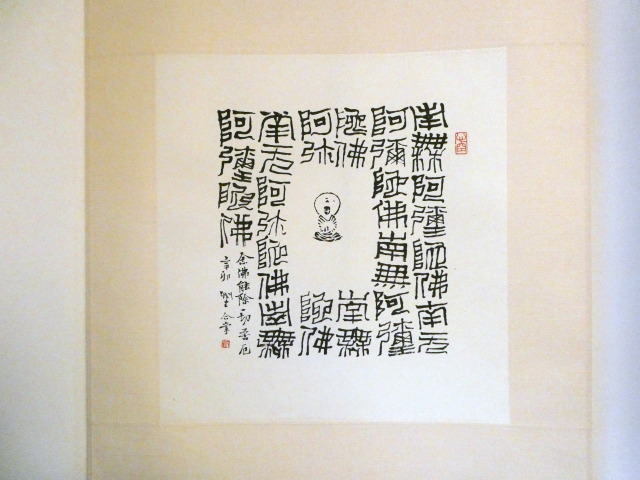 南無阿彌陀佛南无
阿彌陀佛南無阿彌
陀佛南無
阿弥陀佛
南无阿弥陀佛南無
阿彌陀佛
念佛能除一切苦厄
辛卯 合掌